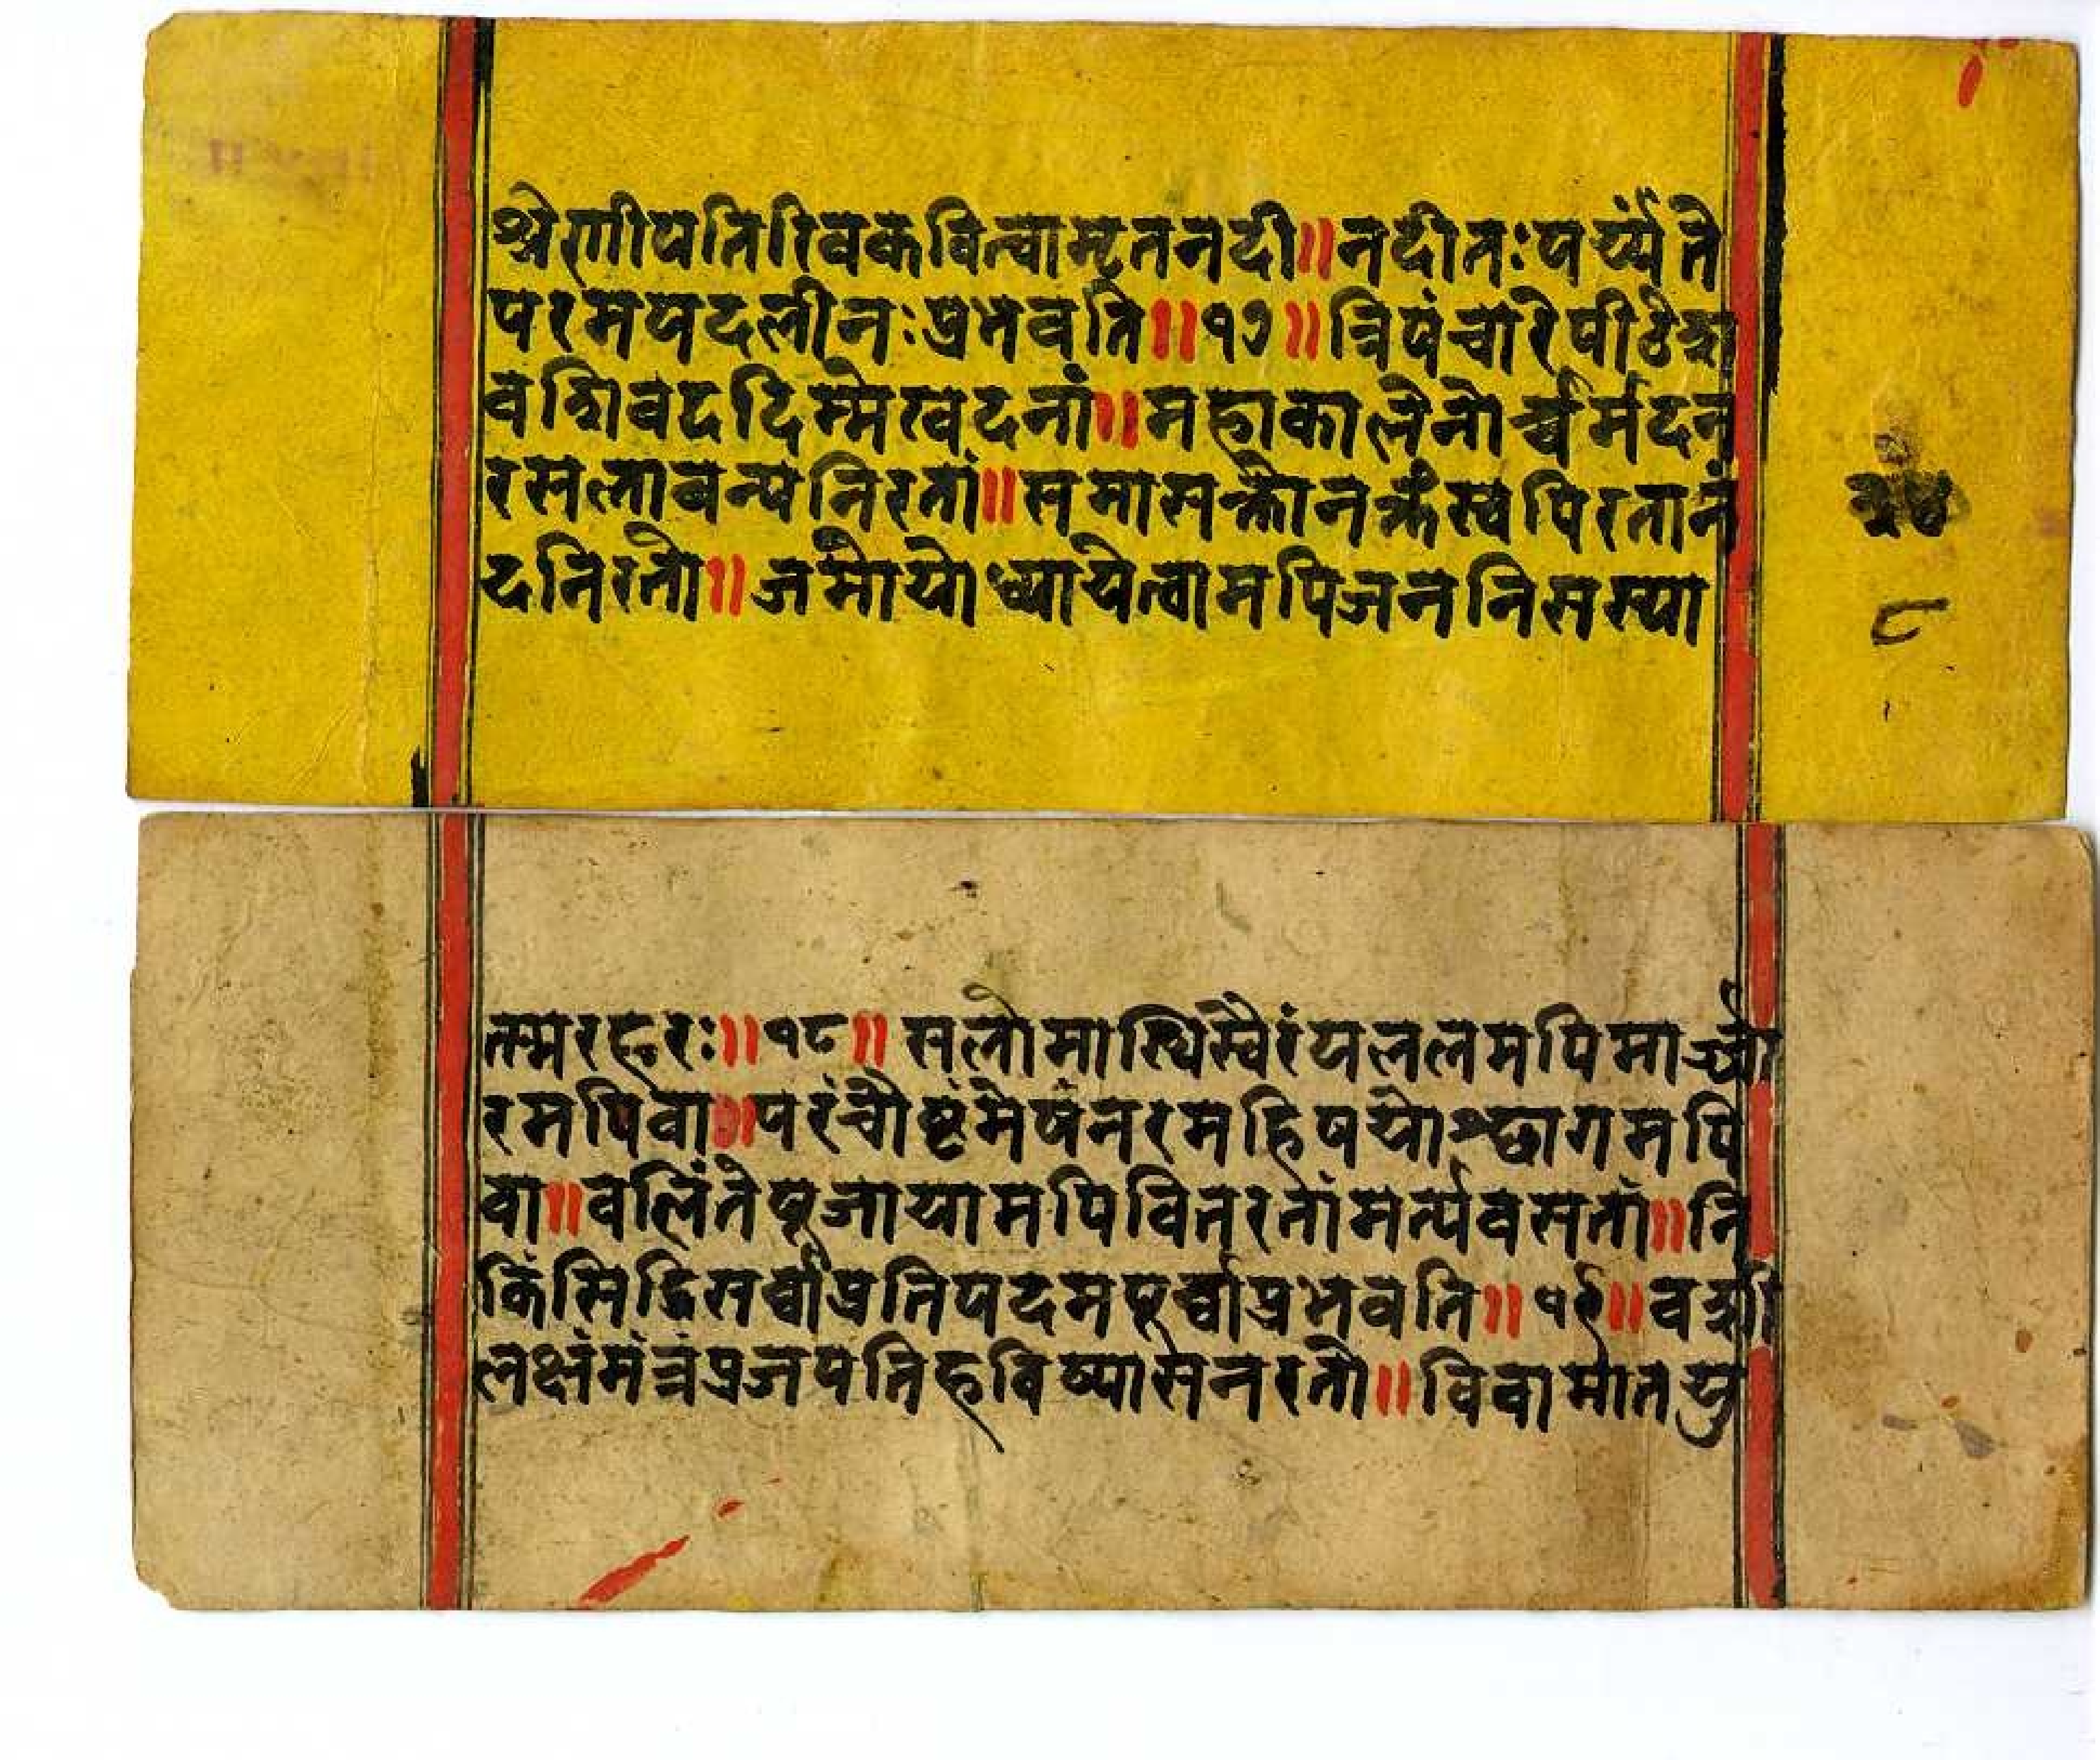 श्रेणीपतिरिवकवित्वामृतनदी॥नदीतःपर्य्यंते
परमपदलीनःप्रभवति॥१७॥त्रिपंचारेपीठेशा
वशिवहृदिम्मेखदनां॥महाकालेनोर्च्चर्मदन
रसलावन्यनिरतां॥समासक्तोनक्तंस्वपिरतानं
दनिरतो॥जमोयोध्यायेत्वामपिजननिसस्या
त्स्मरहरः॥१८॥सलोमास्थिस्वैरंपललमपिमार्ज्जा
रमपिवा॥परंचोष्टंमेषंनरमहिषयोश्छागमपि
वा॥वलिंतेपूजायामपिवितरतांमर्त्यवसतां॥नि
किंसिद्धिसर्वाप्रतिपदमपूर्व्वाप्रभवति॥१९॥वशी
लक्षंमंत्रंप्रजपतिहविष्यासनरतो॥दिवामातयु
८